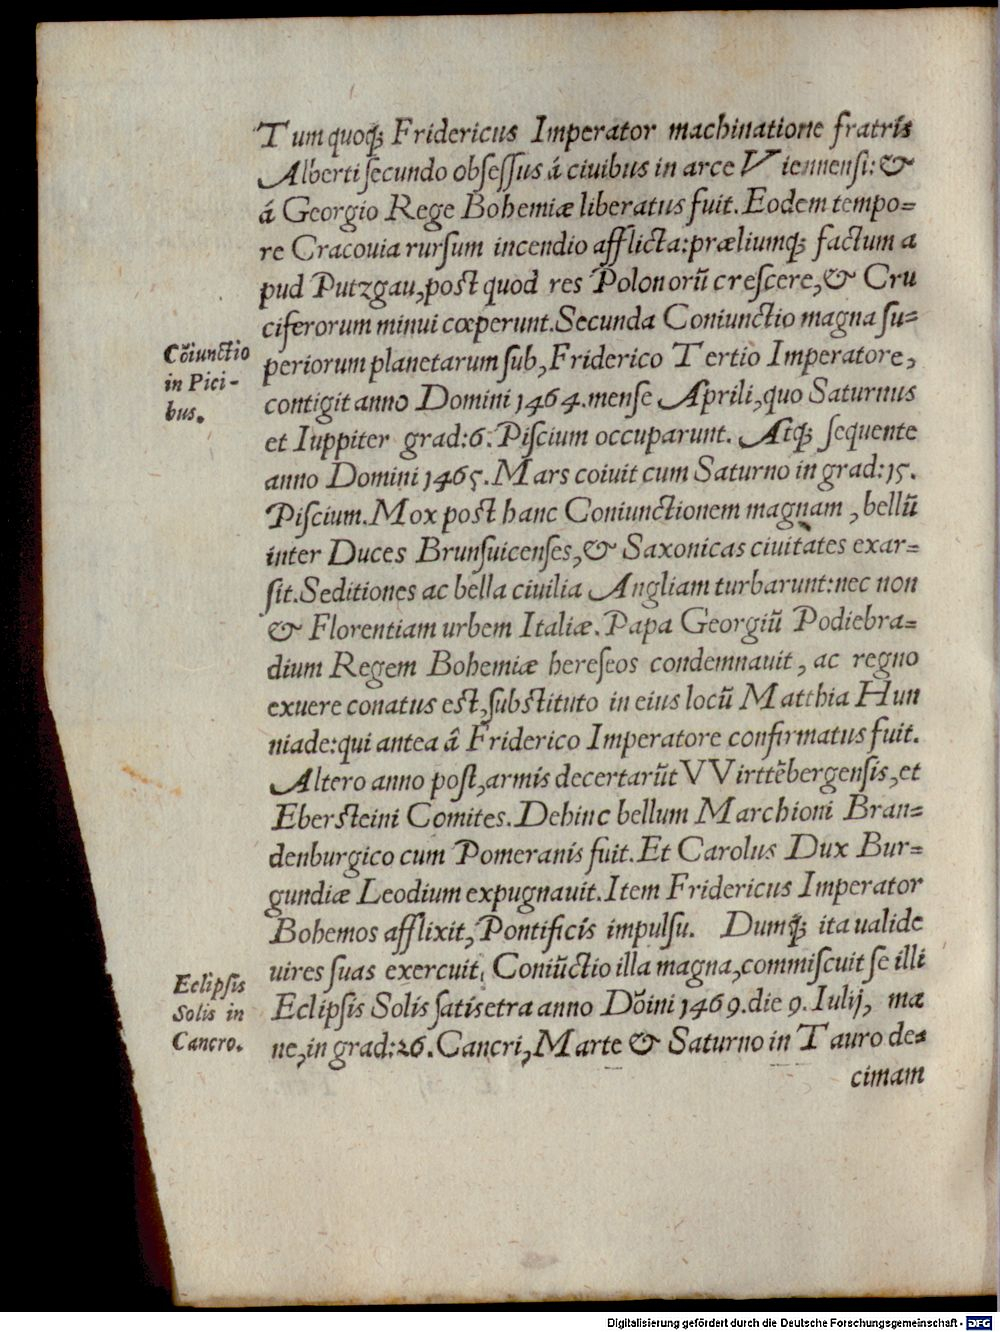 Tum quoq; Fridericus Imperator machinatione fratris
Alberti secundo obsessus á ciuibus in arce Viennensi: &
á Georgio Rege Bohemiæ liberatus fuit. Eodem tempo=
re Cracouia rursum incendio afflicta: præliumq; factum a
pud Putzgau, post quod res Polonorū crescere, & Cru
ciferorum minui cœperunt. Secunda Coniunctio magna su=
Cōiunctio
in Pici-
bus.
periorum planetarum sub, Friderico Tertio Imperatore,
contigit anno Domini 1464. mense Aprili, quo Saturnus
et Iuppiter grad: 6. Piscium occuparunt. Atq; sequente
anno Domini 1465. Mars coiuit cum Saturno in grad: 15.
Piscium. Mox post hanc Coniunctionem magnam, bellū
inter Duces Brunsuicenses, & Saxonicas ciuitates exar=
sit. Seditiones ac bella ciuilia Angliam turbarunt: nec non
& Florentiam urbem Italiæ. Papa Georgiū Podiebra=
dium Regem Bohemiæ hereseos condemnauit, ac regno
exuere conatus est, substituto in eius locū Matthia Hun
niade: qui antea â Friderico Imperatore confirmatus fuit.
Altero anno post, armis decertarūt VVirttēbergensis, et
Ebersteini Comites. Dehinc bellum Marchioni Bran=
denburgico cum Pomeranis fuit. Et Carolus Dux Bur=
gundiæ Leodium expugnauit. Item Fridericus Imperator
Bohemos afflixit, Pontificis impulsu. Dumq; ita ualide
uires suas exercuit, Coniūctio illa magna, commiscuit se illi
Eclipsis
Solis in
Cancro.
Eclipsis Solis satis etra anno Dōini 1469. die 9. Iulij, ma
ne, in grad: 26. Cancri, Marte & Saturno in Tauro de=
cimam
Digitalisierung gefördert durch die Deutsche Forschungsgemeinschaft - DFG